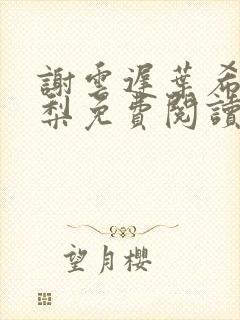 謝雲遲葉希
梨免費閱讀
望月櫻